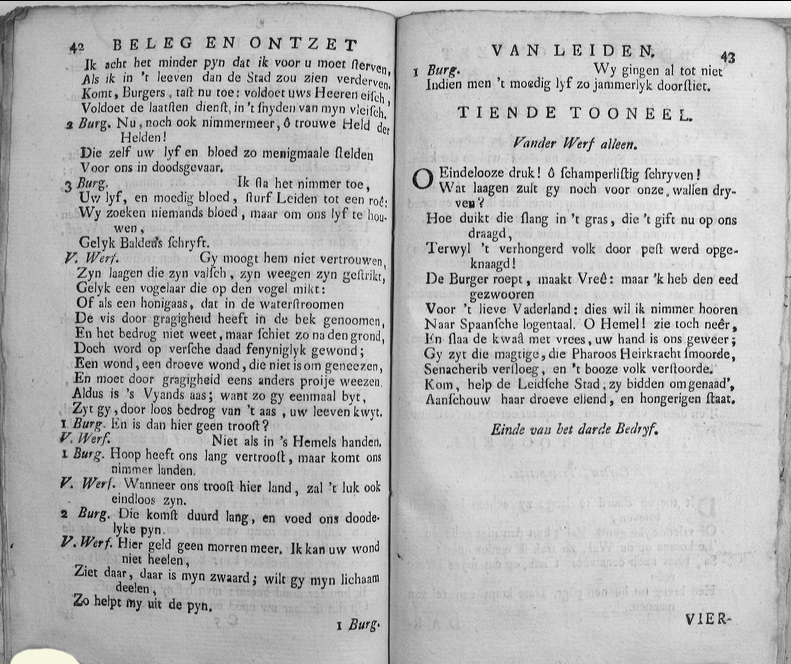 42 BELEG EN ONTZET
Ik acht het minder pyn dat ik voor u moet ſterven,
Als ik in 't leeven dan de Stad zou zien verderven.
Komt, Burgers, taſt nu toe: voldoet uws Heeren eiſch,
Voldoet de laatſten dienſt, in 't ſnyden van myn vleiſch.
2 Burg. Nu, noch ook nimmermeer, ô trouwe Held der
Helden!
Die zelf uw lyf en bloed zo menigmaale ſtelden
Voor ons in doodsgevaar.
3 Burg. Ik ſla het nimmer toe,
Uw lyf, en moedig bloed, ſturf Leiden tot een roê;
Wy zoeken niemands bloed, maar om ons lyf te hou-
wen,
Gelyk Baldeus ſchryft.
V. Werf. Gy moogt hem niet vertrouwen,
Zyn laagen die zyn valſch, zyn weegen zyn geſtrikt,
Gelyk een vogelaar die op den vogel mikt:
Of als een honigaas, dat in de waterſtroomen
De vis door gragigheid heeft in de bek genoomen,
En het bedrog niet weet, maar ſchiet zo na den grond,
Doch word op verſche daad fenyniglyk gewond;
Een wond, een droeve wond, die niet is om geneezen,
En moet door gragigheid eens anders proije weezen.
Aldus is 's Vyands aas; want zo gy eenmaal byt,
Zyt gy, door loos bedrog van 't aas, uw leeven kwyt.
1 Burg. En is dan hier geen trooſt?
V. Werf. Niet als in 's Hemels handen.
1 Burg. Hoop heeft ons lang vertrooſt, maar komt ons
nimmer landen.
V. Werf. Wanneer ons trooſt hier land, zal 't luk ook
eindloos zyn.
2 Burg. Die komſt duurd lang, en voed ons doode-
lyke pyn.
V. Werf. Hier geld geen morren meer. Ik kan uw wond
niet heelen,
Ziet daar, daar is myn zwaard; wilt gy myn lichaam
deelen,
Zo helpt my uit de pyn.
1 Burg.
VAN LEIDEN. 43
1 Burg. Wy gingen al tot niet
Indien men 't moedig lyf zo jammerlyk doorſtiet.
TIENDE TOONEEL.
Vander Werf alleen.
O Eindelooze druk! ô ſchamperliſtig ſchryven!
Wat laagen zult gy noch voor onze wallen dry-
ven?
Hoe duikt die ſlang in 't gras, die 't gift nu op ons
draagd,
Terwyl 't verhongerd volk door peſt werd opge-
knaagd!
De Burger roept, maakt Vreê: maar 'k heb den eed
gezwooren
Voor 't lieve Vaderland: dies wil ik nimmer hooren
Naar Spaanſche logentaal. O Hemel! zie toch neêr,
En ſlaa de kwaâ met vrees, uw hand is ons geweer;
Gy zyt die magtige, die Pharoos Heirkracht ſmoorde,
Senacherib verſloeg, en 't booze volk verſtoorde.
Kom, help de Leidſche Stad, zy bidden om genaad',
Aanſchouw haar droeve ellend, en hongerigen ſtaat.
Einde van het darde Bedryf.
VIER-